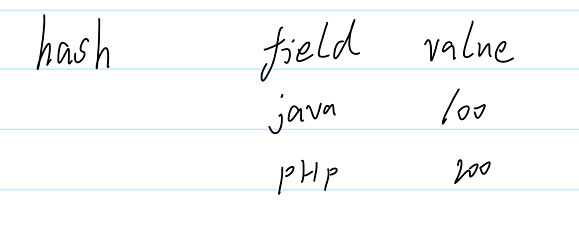 hash field value
java 100
pHp 200